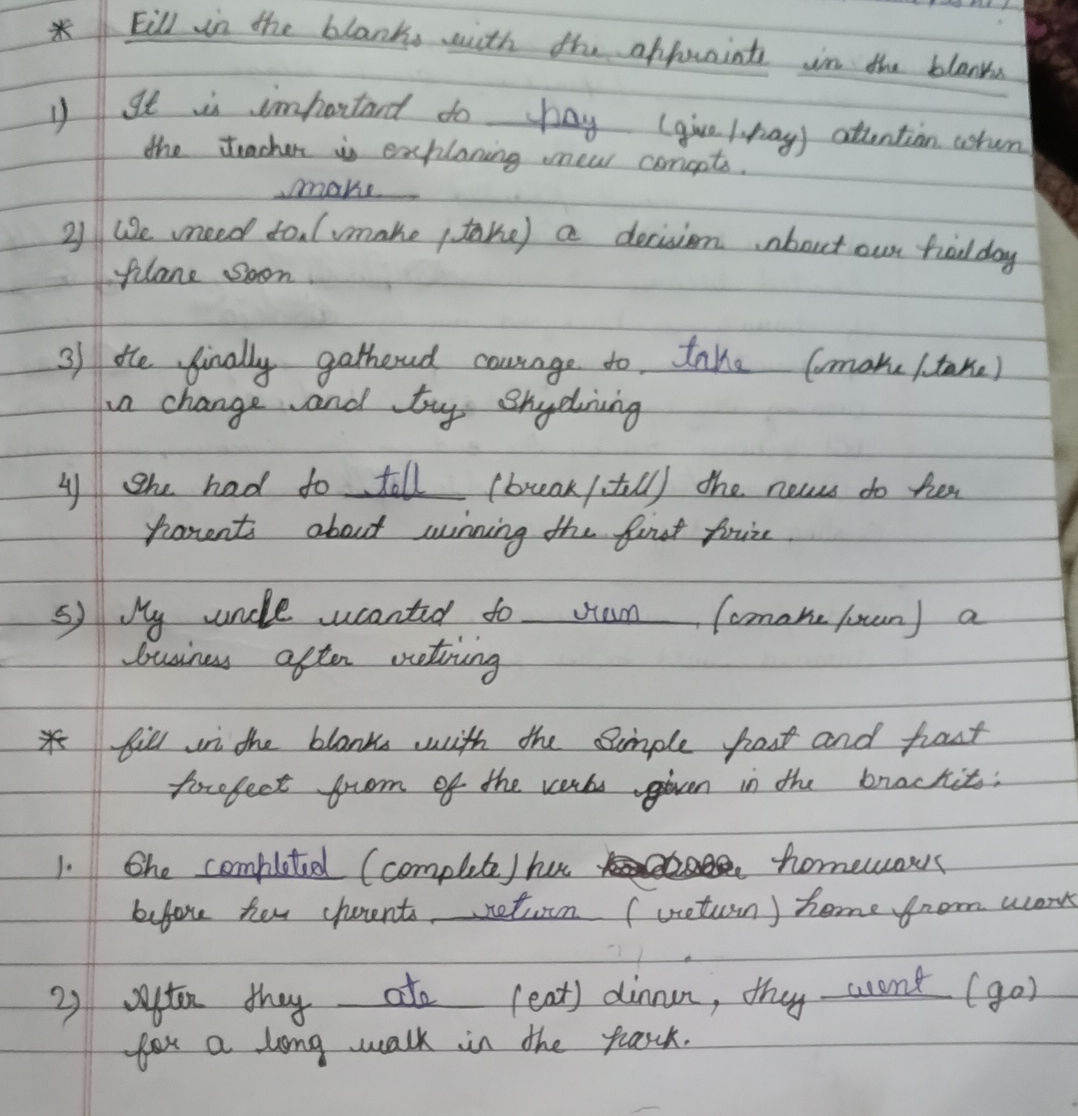 * Fill in the blanks with the appraints in the blanks
1) It is important to pay (give/pay) attention when
the teacher is explaning new concpts.
make
2) We need to (make / take) a decision about our hoilday
plane soon.
3) He finally gathered courage to take (make/take)
a change and try Skydining
4) She had to tell (break/tell) the news to her
parents about winning the first prize
5) My uncle wanted to run (make/run) a
business after retiring
* fill in the blanks with the Simple past and past
prefect from of the verbs given in the brackits:
1. She completed (complete) her homework
before her perents return (return) home from work
2) After they ate (eat) dinner, they went (go)
for a long walk in the park.